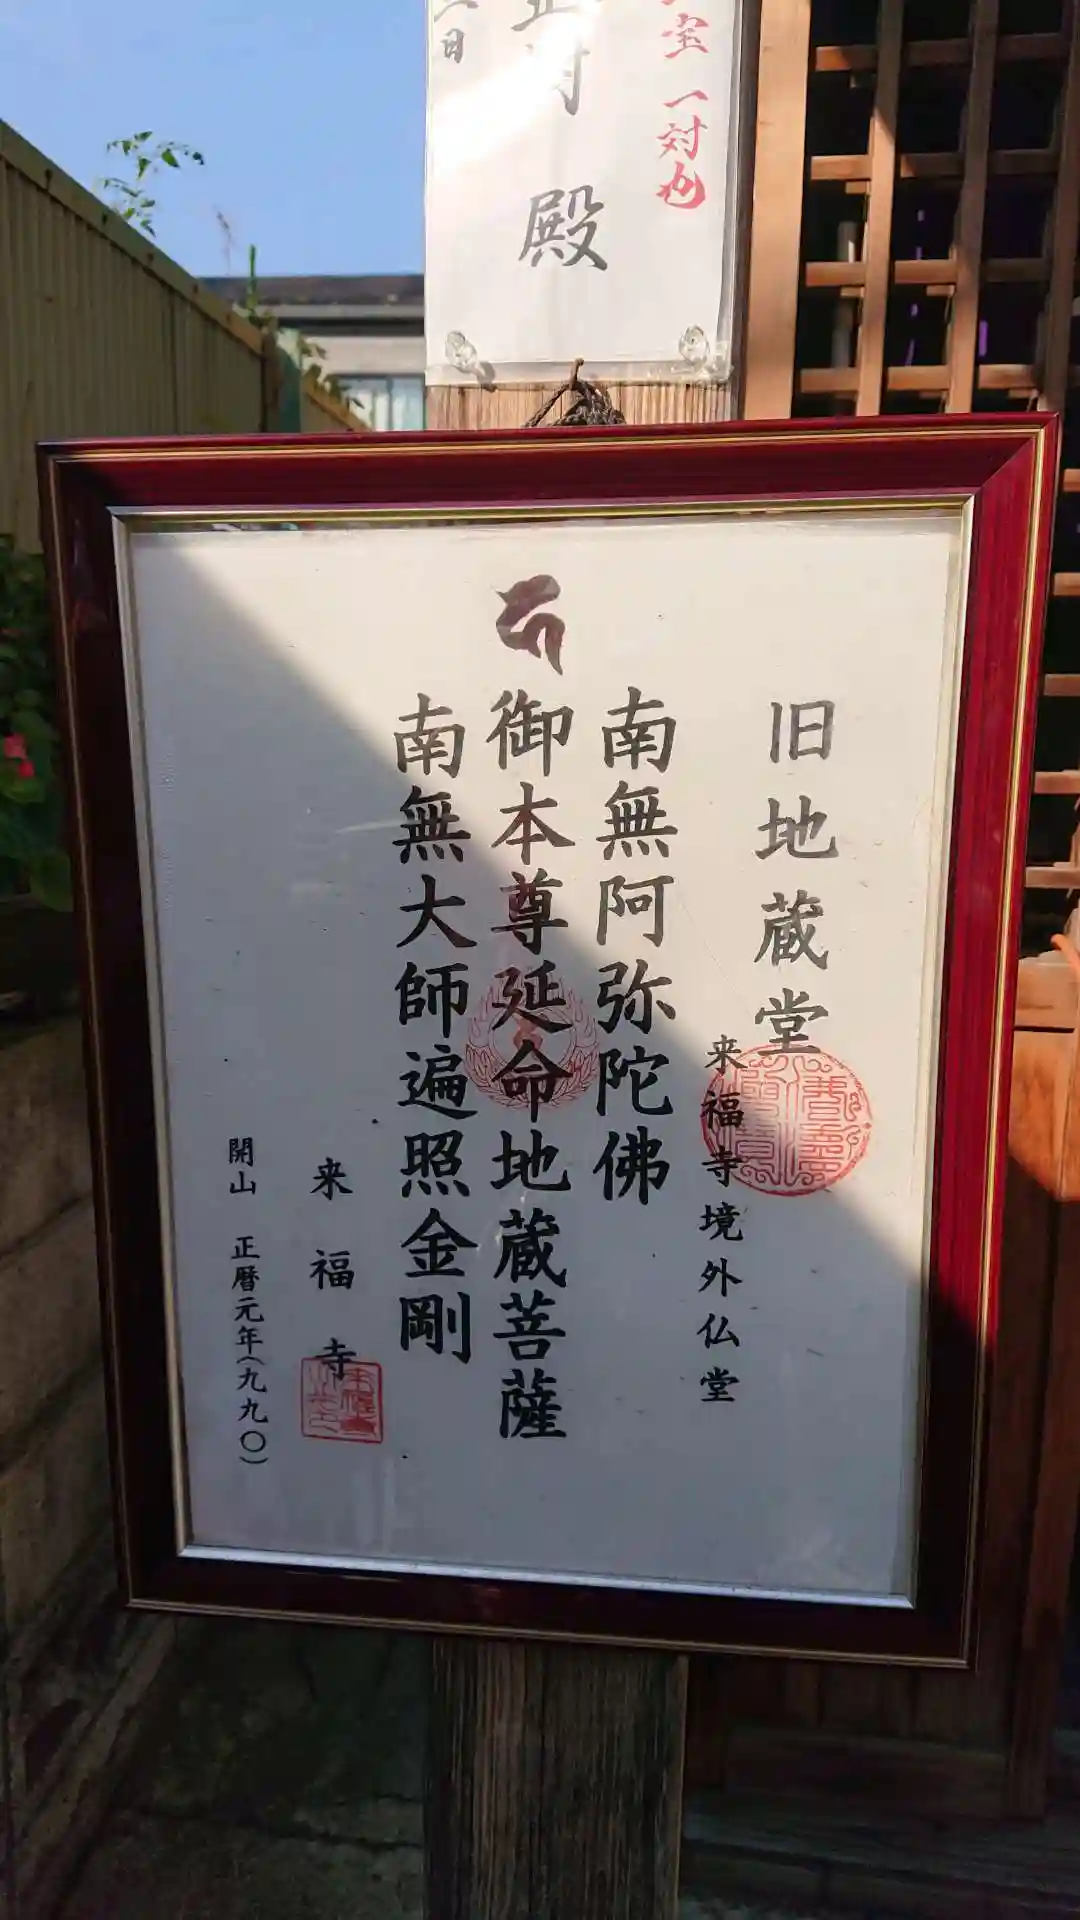 宝 一対也
殿
日
旧地蔵堂
来福寺境外仏堂
南無阿弥陀佛
御本尊延命地蔵菩薩
南無大師遍照金剛
来福寺
開山 正暦元年(九九〇)